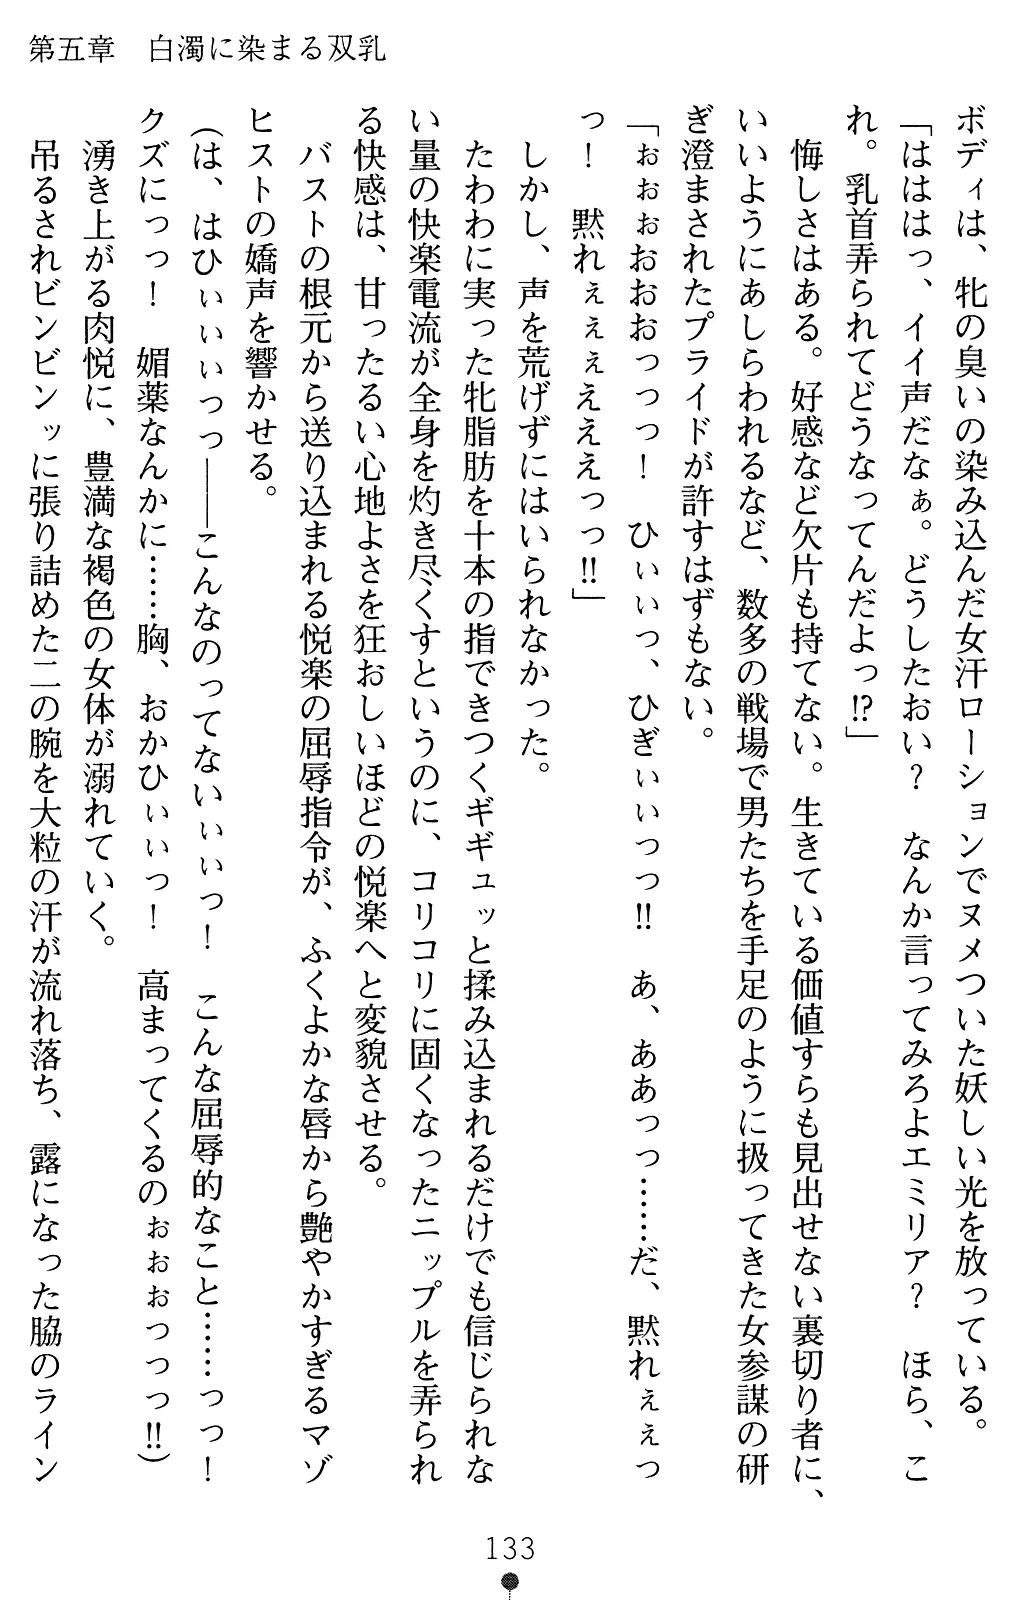 第五章　白濁に染まる双乳
ボディは、牝の臭いの染み込んだ女汗ローションでヌメついた妖しい光を放っている。
「はははっ、イイ声だなぁ。どうしたおい？　なんか言ってみろよエミリア？　ほら、こ
れ。乳首弄られてどうなってんだよっ!?」
　悔しさはある。好感など欠片も持てない。生きている価値すらも見出せない裏切り者に、
いいようにあしらわれるなど、数多の戦場で男たちを手足のように扱ってきた女参謀の研
ぎ澄まされたプライドが許すはずもない。
「ぉぉぉおおおっっっ！　ひぃぃっ、ひぎぃぃっっ!!　あ、ああっっ……だ、黙れぇぇっ
っ！　黙れぇぇぇえええっっ!!」
　しかし、声を荒げずにはいられなかった。
　たわわに実った牝脂肪を十本の指できつくギギュッと揉み込まれるだけでも信じられな
い量の快楽電流が全身を灼き尽くすというのに、コリコリに固くなったニップルを弄られ
る快感は、甘ったるい心地よさを狂おしいほどの悦楽へと変貌させる。
　バストの根元から送り込まれる悦楽の屈辱指令が、ふくよかな唇から艶やかすぎるマゾ
ヒストの嬌声を響かせる。
（は、はひぃぃぃっっ――こんなのってないぃぃっ！　こんな屈辱的なこと……っっ！
クズにっっ！　媚薬なんかに……胸、おかひぃぃっ！　高まってくるのぉぉぉっっっ!!）
　湧き上がる肉悦に、豊満な褐色の女体が溺れていく。
　吊るされビンビンッに張り詰めた二の腕を大粒の汗が流れ落ち、露になった脇のライン
133